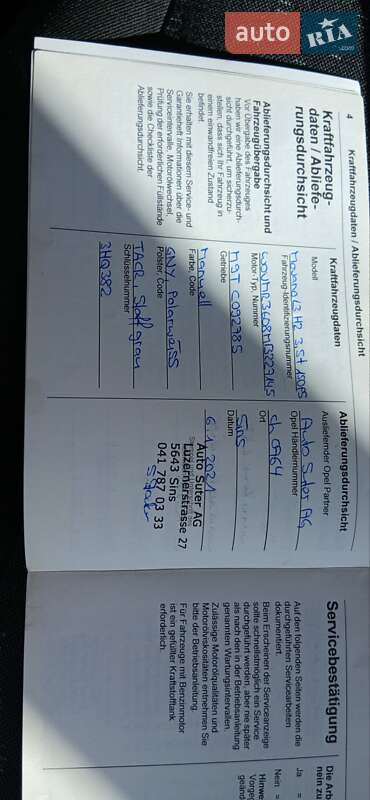 auto
RIA
.com
4
Kraftfahrzeugdaten / Ablieferungsdurchsicht
Kraftfahrzeug-
daten / Abliefe-
rungsdurchsicht
Ablieferungsdurchsicht und
Fahrzeugübergabe
Vor Übergabe des Fahrzeuges
haben wir eine Ablieferungsdurch-
sicht durchgeführt, um sicherzu-
stellen, dass sich Ihr Fahrzeug in
einem einwandfreien Zustand
befindet.
Sie erhalten mit diesem Service- und
Garantieheft Informationen über die
Serviceintervalle, Motorölwechsel,
Prüfung der erforderlichen Füllstände
sowie die Checkliste der
Ablieferungsdurchsicht.
Kraftfahrzeugdaten
Modell
Movano L3 H2 3,5t 150PS
Fahrzeug-Identifizierungsnummer
Motor-Typ, Nummer
M9T C092785
Getriebe
Manuell
Farbe, Code
GNY, Polarweiss
Polster, Code
Schlüsselnummer
Ablieferungsdurchsicht
Ausliefernder Opel Partner
Auto Suter AG
Opel Händlernummer
Ort
Sins
Datum
6.1.2021
Auto Suter AG
Luzernerstrasse 27
5643 Sins
041 787 03 33
Servicebestätigung
Auf den folgenden Seiten werden die
durchgeführten Servicearbeiten
dokumentiert.
Beim Erscheinen der Serviceanzeige
sollte schnellstmöglich ein Service
durchgeführt werden, aber nie später
als nach den in der Betriebsanleitung
genannten Wartungsintervallen.
Zulässige Motorölqualitäten und
Motorölviskositäten entnehmen Sie
bitte der Betriebsanleitung.
Für Fahrzeuge mit Benzinmotor
ist ein gefüllter Kraftstofftank
erforderlich.
Die Arb
nein zu
Ja =
Nein =
Hinwe
Vorge
geänd